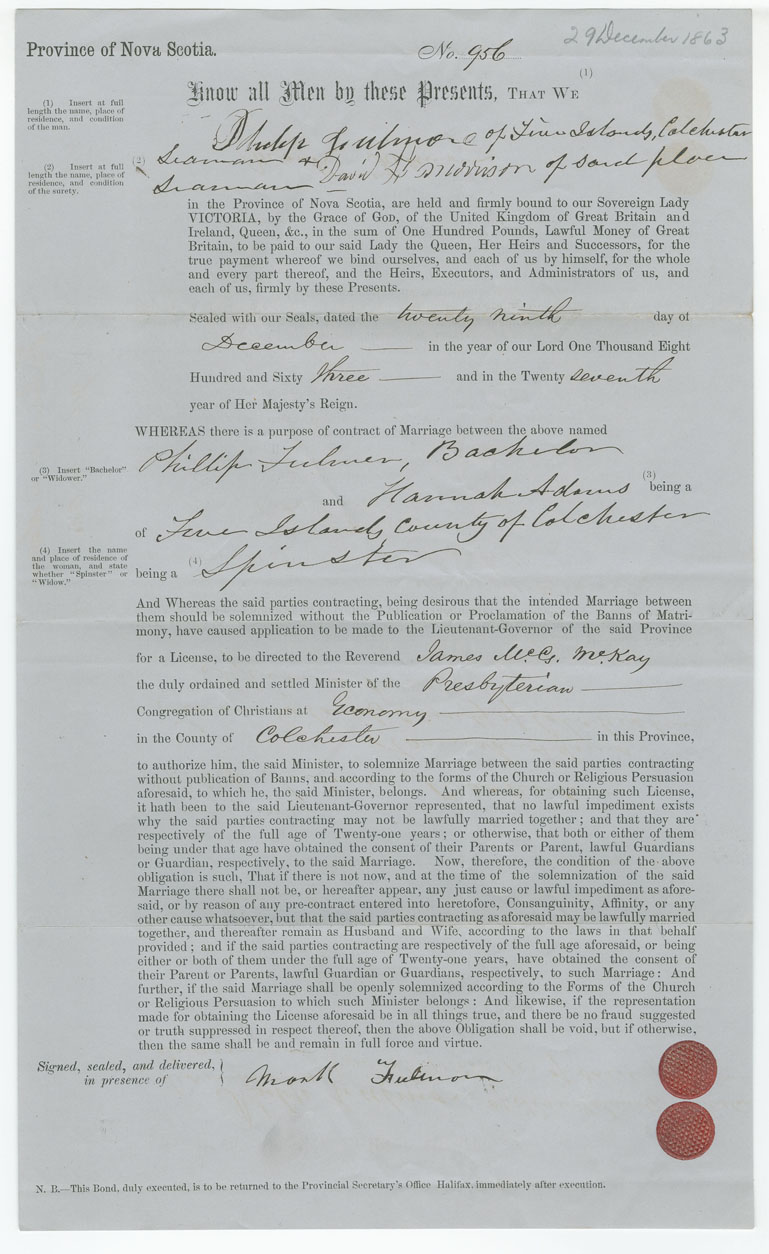 29 December 1863
Province of Nova Scotia.
No. 956
(1)
Know all Men by these Presents, THAT WE
(1) Insert at full length the name, place of residence, and condition of the man.
Philip of Five Islands, Colchester
(2)
Seaman & David of said place
(2) Insert at full length the name, place of residence, and condition of the surety.
Seaman
in the Province of Nova Scotia, are held and firmly bound to our Sovereign Lady
VICTORIA, by the Grace of God, of the United Kingdom of Great Britain and
Ireland, Queen, &c., in the sum of One Hundred Pounds, Lawful Money of Great
Britain, to be paid to our said Lady the Queen, Her Heirs and Successors, for the
true payment whereof we bind ourselves, and each of us by himself, for the whole
and every part thereof, and the Heirs, Executors, and Administrators of us, and
each of us, firmly by these Presents.
Sealed with our Seals, dated the twenty ninth day of
December in the year of our Lord One Thousand Eight
Hundred and Sixty three and in the Twenty seventh
year of Her Majesty's Reign.
WHEREAS there is a purpose of contract of Marriage between the above named
Phillip Fulmer, Bachelor
(3) Insert "Bachelor" or "Widower."
(3)
and Hannah Adams being a
of Five Islands County of Colchester
(4) Insert the name and place of residence of the woman, and state whether "Spinster" or "Widow."
being a (4) Spinster
And Whereas the said parties contracting, being desirous that the intended Marriage between
them should be solemnized without the Publication or Proclamation of the Banns of Matri-
mony, have caused application to be made to the Lieutenant-Governor of the said Province
for a License, to be directed to the Reverend James McG. McKay
the duly ordained and settled Minister of the Presbyterian
Congregation of Christians at Economy
in the County of Colchester in this Province,
to authorize him, the said Minister, to solemnize Marriage between the said parties contracting
without publication of Banns, and according to the forms of the Church or Religious Persuasion
aforesaid, to which he, the said Minister, belongs. And whereas, for obtaining such License,
it hath been to the said Lieutenant-Governor represented, that no lawful impediment exists
why the said parties contracting may not be lawfully married together; and that they are
respectively of the full age of Twenty-one years; or otherwise, that both or either of them
being under that age have obtained the consent of their Parents or Parent, lawful Guardians
or Guardian, respectively, to the said Marriage. Now, therefore, the condition of the above
obligation is such, That if there is not now, and at the time of the solemnization of the said
Marriage there shall not be, or hereafter appear, any just cause or lawful impediment as afore-
said, or by reason of any pre-contract entered into heretofore, Consanguinity, Affinity, or any
other cause whatsoever, but that the said parties contracting as aforesaid may be lawfully married
together, and thereafter remain as Husband and Wife, according to the laws in that behalf
provided; and if the said parties contracting are respectively of the full age aforesaid, or being
either or both of them under the full age of Twenty-one years, have obtained the consent of
their Parent or Parents, lawful Guardian or Guardians, respectively, to such Marriage: And
further, if the said Marriage shall be openly solemnized according to the Forms of the Church
or Religious Persuasion to which such Minister belongs: And likewise, if the representation
made for obtaining the License aforesaid be in all things true, and there be no fraud suggested
or truth suppressed in respect thereof, then the above Obligation shall be void, but if otherwise,
then the same shall be and remain in full force and virtue.
Signed, sealed, and delivered,
in presence of
Mark Fulmor
N. B.—This Bond, duly executed, is to be returned to the Provincial Secretary's Office Halifax, immediately after execution.